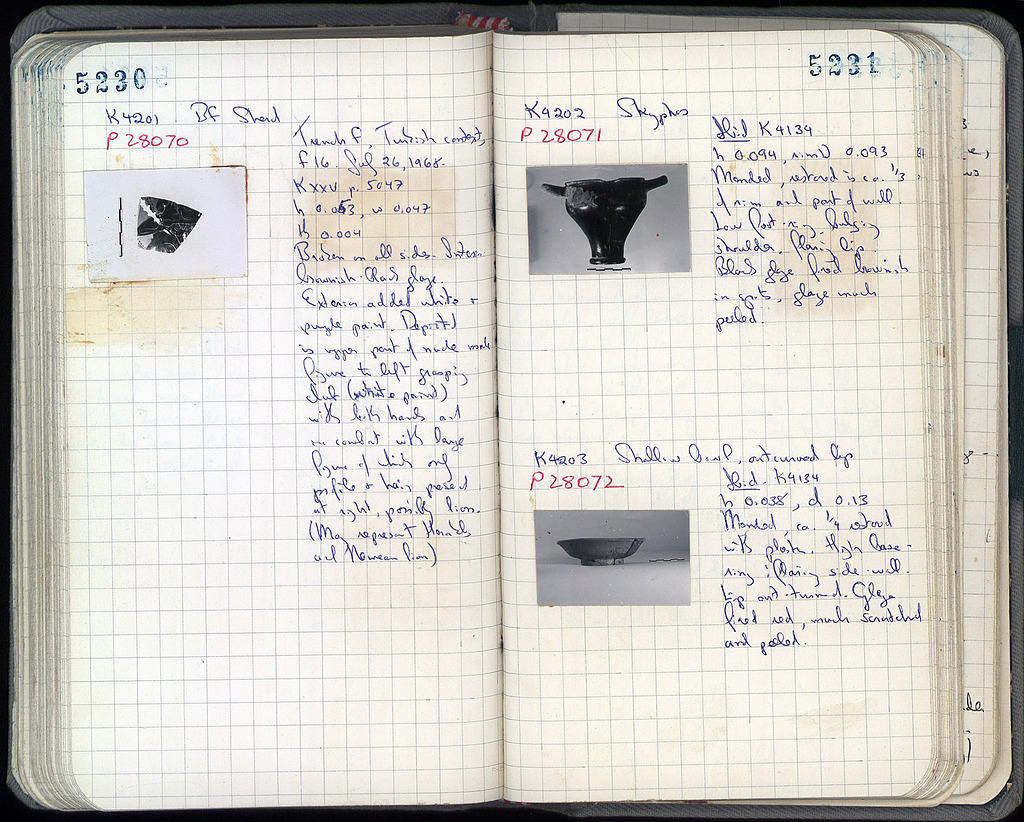 5230
K4201 BF Sherd
P 28070
Trench F, Turkish context,
f 16. July 26, 1968.
K XXV p. 5047
h 0.053, w 0.047
th 0.004
Broken on all sides. Interior
brownish-black glaze.
Exterior added white +
purple paint. Depicted
is upper part of nude male
figure to left grasping
club (white paint)
with both hands and
in combat with large
figure of which only
profile + hair preserved
at right, possibly lion.
(May represent Herakles
and Nemean lion)
5231
K4202 Skyphos
P 28071
Ibid K4134
h 0.094, rim D 0.093
Mended, restored is ca. 1/3
of rim and part of wall.
Low foot-ring, bulging
shoulder, flaring lip.
Black glaze fired brownish
in spots, glaze much
peeled.
K4203 Shallow bowl, outcurved lip
P 28072
Ibid. K4134
h 0.038, d 0.13
Mended, ca. 1/4 restored
with plaster. High base-
ring; flaring side-wall.
Lip out-turned. Glaze
fired red, much scratched
and peeled.